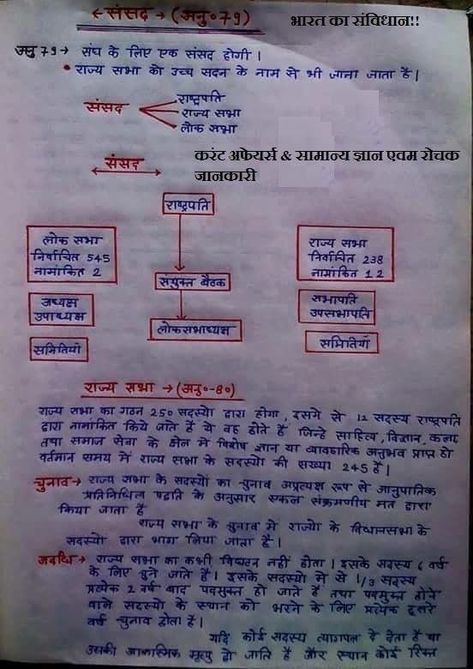 ← संसद → (अनु॰ 79)
भारत का संविधान!!
अनु 79 → संघ के लिए एक संसद होगी।
• राज्य सभा को उच्च सदन के नाम से भी जाना जाता है।
संसद
राष्ट्रपति
राज्य सभा
लोक सभा
संसद
करंट अफेयर्स & सामान्य ज्ञान एवम रोचक
जानकारी
राष्ट्रपति
लोक सभा
निर्वाचित 545
नामांकित 2
राज्य सभा
निर्वाचित 238
नामांकित 12
संयुक्त बैठक
अध्यक्ष
उपाध्यक्ष
सभापति
उपसभापति
लोकसभाध्यक्ष
समितियाँ
समितियाँ
राज्य सभा → (अनु॰-80)
राज्य सभा का गठन 250 सदस्यो द्वारा होगा, इसमे से 12 सदस्य राष्ट्रपति
द्वारा नामांकित किये जाते है ये वह होते है जिन्हे साहित्य, विज्ञान, कला
तथा समाज सेवा के क्षेत्र मे विशेष ज्ञान या व्यावहारिक अनुभव प्राप्त हो
वर्तमान समय मे राज्य सभा के सदस्यो की संख्या 245 है।
चुनाव → राज्य सभा के सदस्यों का चुनाव अप्रत्यक्ष रूप से आनुपातिक
प्रतिनिधित्व पद्दति के अनुसार एकल संक्रमणीय मत द्वारा
किया जाता है
राज्य सभा के चुनाव मे राज्यो के विधानसभा के
सदस्यो द्वारा भाग लिया जाता है।
अवधि → राज्य सभा का कभी विघटन नहीं होता। इसके सदस्य 6 वर्ष
के लिए चुने जाते है। इसके सदस्यो मे से 1/3 सदस्य
प्रत्येक 2 वर्ष बाद पदमुक्त हो जाते है तथा पदमुक्त होने
वाले सदस्यो के स्थान को भरने के लिए प्रत्येक दूसरे
वर्ष चुनाव होता है।
यदि कोई सदस्य त्यागपत्र दे देता है या
उसकी आकस्मिक मृत्यु हो जाती है और स्थान कोई रिक्त